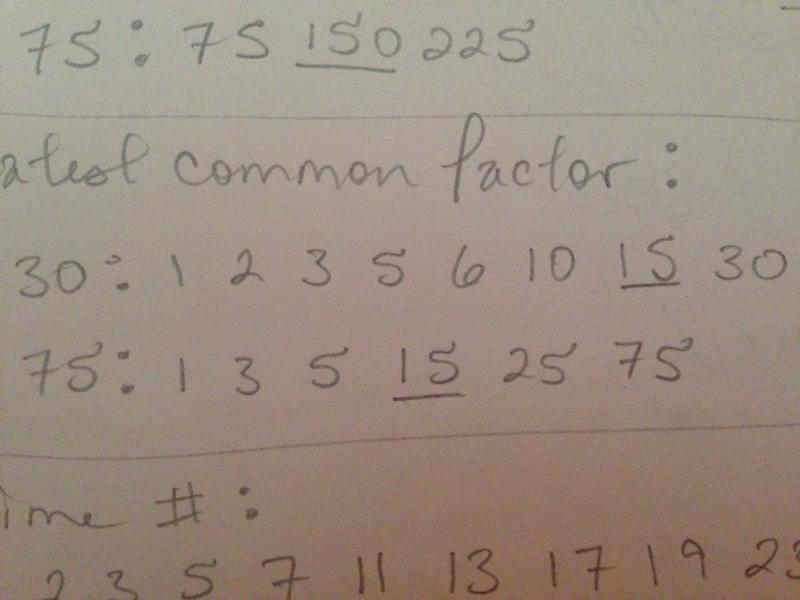 75: 75 150 225
atest common factor:
30: 1 2 3 5 6 10 15 30
75: 1 3 5 15 25 75
ime #:
2 3 5 7 11 13 17 19 23